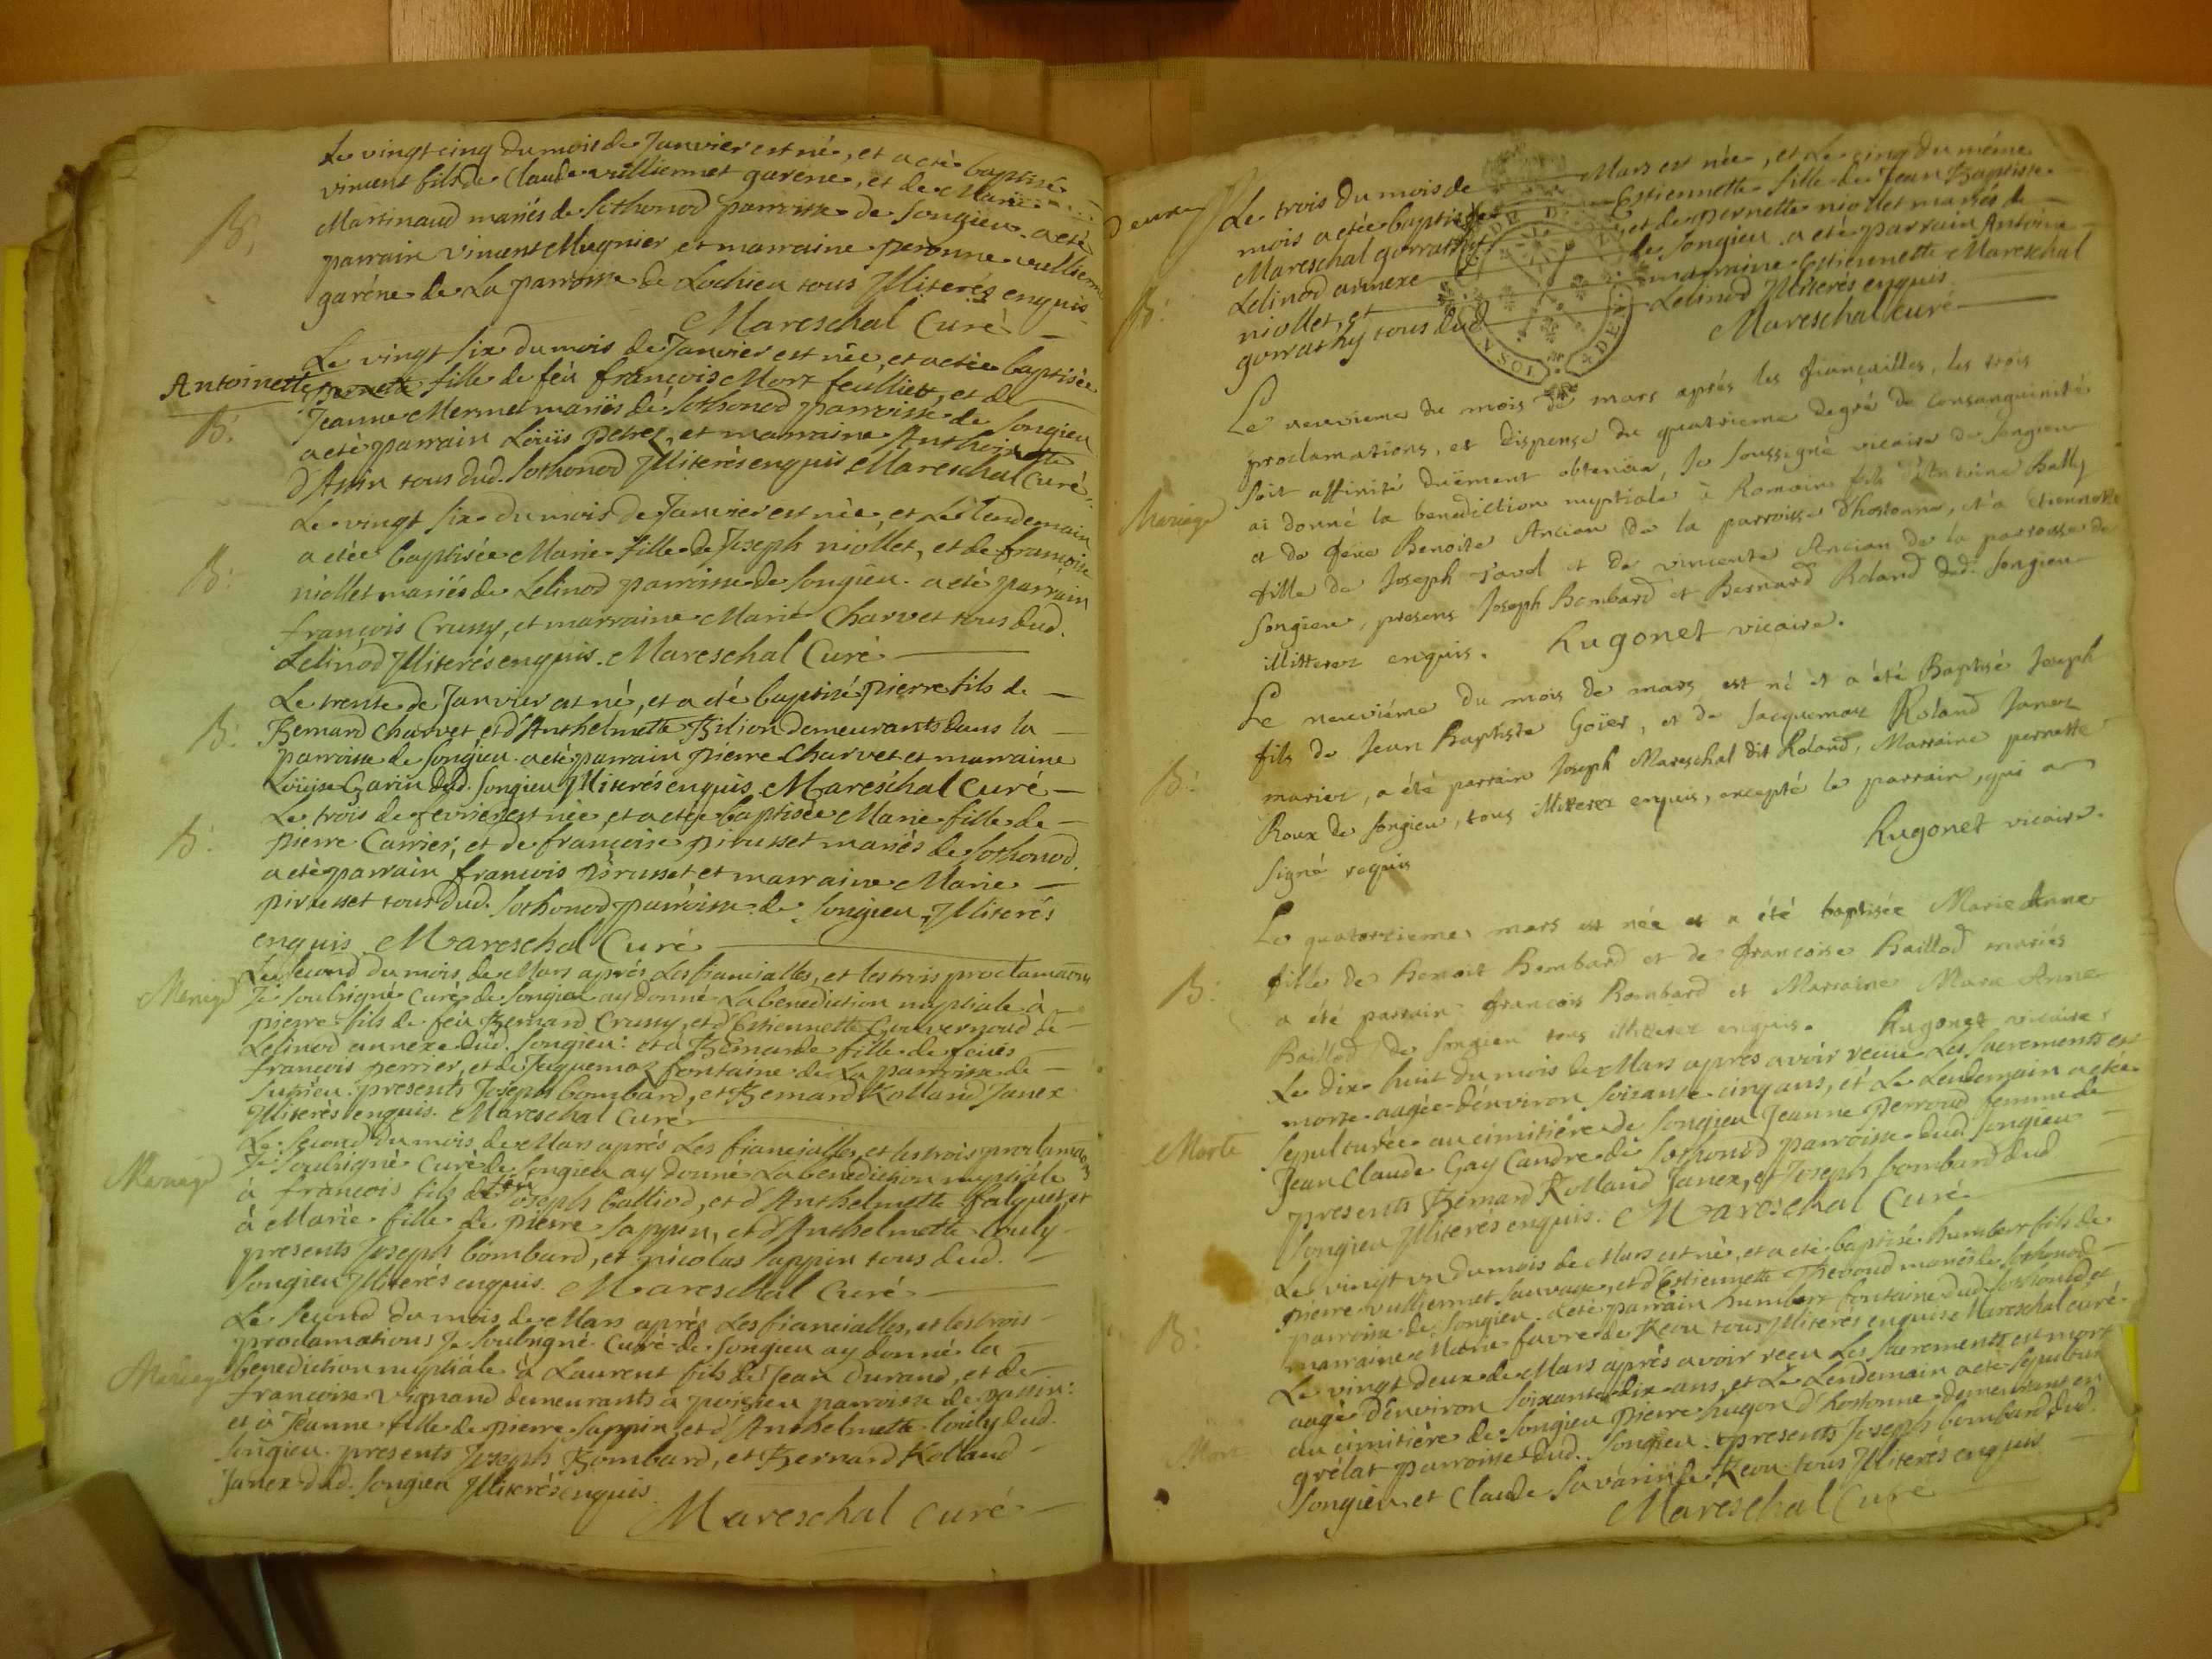 Le vingt cinq du mois de Janvier est né, et a eté baptisé
vincent fils de Claude vulliermet garene, et de Marie
B. Martinaud mariés de Sothonod parroisse de Songieu. a eté
parrain vincent Mugnier, et marraine peronne vullierme
garéne de La parroisse de Lochieu tous Illiterés enquis
Mareschal Curé
Le vingt six du mois de Janvier est née, et a etée baptisée
Antoinette fille de féu françois Mort feulliet, et de
B. Jeanne Mermet mariés de Sothonod parroisse de Songieu
a eté parrain Loüis , et marraine Anthoinette
d'Assin tous dud. Sothonod Illiterés enquis Mareschal Curé
Le vingt six du mois de Janvier est née, et Le lendemain
a etée baptisée Marie fille de Joseph niollet, et de françoise
B: niollet mariés de Lelinod parroisse de Songieu. a eté parrain
françois Crussy, et marraine Marie Charvet tous dud.
Lelinod Illiterés enquis. Mareschal Curé
Le trente de Janvier est né, et a eté baptisé pierre fils de
B: Bernard Charvet, et d'Anthelmette Bilion demeurants dans la
parroisse de Songieu. a eté parrain pierre Charvet et marraine
Loüise Garin dud. Songieu Illiterés enquis Mareschal Curé
Le trois de fevrier est née, et a etée baptisée Marie fille de
B: pierre Carrier, et de françoise pirusset mariés de Sothonod
a eté parrain françois pirusset et marraine Marie
pirusset tous dud. Sothonod parroisse de Songieu, Illiterés
enquis Mareschal Curé
Le second du mois de Mars aprés Les fiancialles, et les trois proclamaons
Mariage Je soubsigné Curé de Songieu ay donné La benediction nuptiale à
pierre fils de feu Bernard Crussy, et d'Estiennette Gouvernaud de
Lelinod annexe dud. Songieu: et à Bernarde fille de feües
françois perrier, et de Jaquemaz fontaine de La parroisse de
Sutrieu. presents Joseph bombard, et Bernard Rolland Janex
Illiterés enquis. Mareschal Curé
Le second du mois de Mars aprés Les fiancialles, et les trois proclamaons
Mariage Je soubsigné Curé de Songieu ay donné La benediction nuptiale
à françois fils de feu Joseph balliod, et d'Anthelmette falquet, et
à Marie fille de pierre Sappin, et d'Anthelmette Couly
presents Joseph bombard, et nicolas Sappin tous dud.
Songieu Illiterés enquis. Mareschal Curé
Le second du mois de Mars aprés Les fiancialles, et les trois
proclamations Je soubsigné Curé de Songieu ay donné la
Mariage benediction nuptiale à Laurent fils de Jean Durand, et de
françoise Vignand demeurants à poisieu parroisse de passin:
et à Jeanne fille de pierre Sappin et d'Anthelmette Couly dud.
Songieu. presents Joseph Bombard, et Bernard Rolland
Janex dud. Songieu Illiterés enquis.
Mareschal Curé
deux
Le trois du mois de Mars est née, et Le cinq du même
mois a etée baptisée Estiennette fille de Jean Baptiste
Mareschal gorrathy et de pernette niollet mariés de
B: Lelinod annexe de Songieu. a eté parrain Antoine
niollet, et marraine Estiennette Mareschal
gorrathy tous dud. Lelinod Illiterés enquis
Mareschal curé
Le neuvieme du mois de mars aprés les fiançailles, les trois
proclamations, et dispense du quatrieme degré de consanguinité
soit affinité düement obtenüe, Je soussigné vicaire de Songieu
Mariage ai donné la benediction nuptiale à Romain fils d'Antoine bally
et de feüe Benoite Ancian de la parroisse d'hostonne, et à Etiennette
fille de Joseph et de vincente Ancian de la parroisse de
Songieu, presens Joseph Bombard et Bernard Roland dud. Songieu
illitterez enquis. hugonet vicaire.
Le neuviéme du mois de mars est né et a été Baptisé Joseph
fils de Jean Baptiste Goïer, et de Jacquemaz Roland Janex
B: mariez, a été parrain Joseph Mareschal dit Roland, Marraine pernette
Roux de Songieu, tous illitterez enquis, excepté le parrain, qui a
signé requis
hugonet vicaire.
Le quatorzieme mars est née et a été baptisée Marie Anne
B: fille de Benoit Bombard et de françoise Baillod mariés
a été parrain françois Bombard et Marraine Marie Anne
Baillod de Songieu tous illitterez enquis. hugonet vicaire
Le dix huit du mois de Mars apres avoir reçüe Les sacrements est
morte aagée d'environ soixante cinq ans, et Le Lendemain a etée
Morte sepulturée au cimitiére de Songieu Jeanne perroud femme de
Jean Claude Gay Candre de Sothonod parroisse dud. Songieu
presents Bernard Rolland Janex, et Joseph bombard dud.
Songieu Illiterés enquis. Mareschal Curé
Le vingt un du mois de Mars est né, et a eté baptisé humbert fils de
pierre vulliermet sauvage, et d'Estiennette Thevoud mariés de Sothonod
B: parroisse de Songieu. a eté parrain humbert fontaine dud. Sothonod et
marraine Marie favre de Reou tous Illiterés enquis Mareschal curé
Le vingt deux de Mars aprés avoir reçu Les sacrements est mort
aagé d'environ soixante dix ans, et Le Lendemain a eté sepulturé
Mort au cimitière de Songieu pierre hugon d'hostonne demeurant en
grélat parroisse dud. Songieu. presents Joseph bombard dud.
Songieu, et Claude Savarin de Reou tous Illiterés enquis
Mareschal Curé